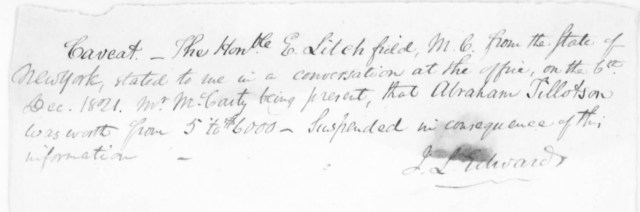 Caveat. – The Honble E. Litchfield, M.C. from the State of
New York, stated to me in a conversation at the office, on the 6th
Dec. 1821. Mr McCarty being present, that Abraham Tillotson
was worth from 5 to $6000 – Suspended in consequence of this
information –
J. L. Edwards